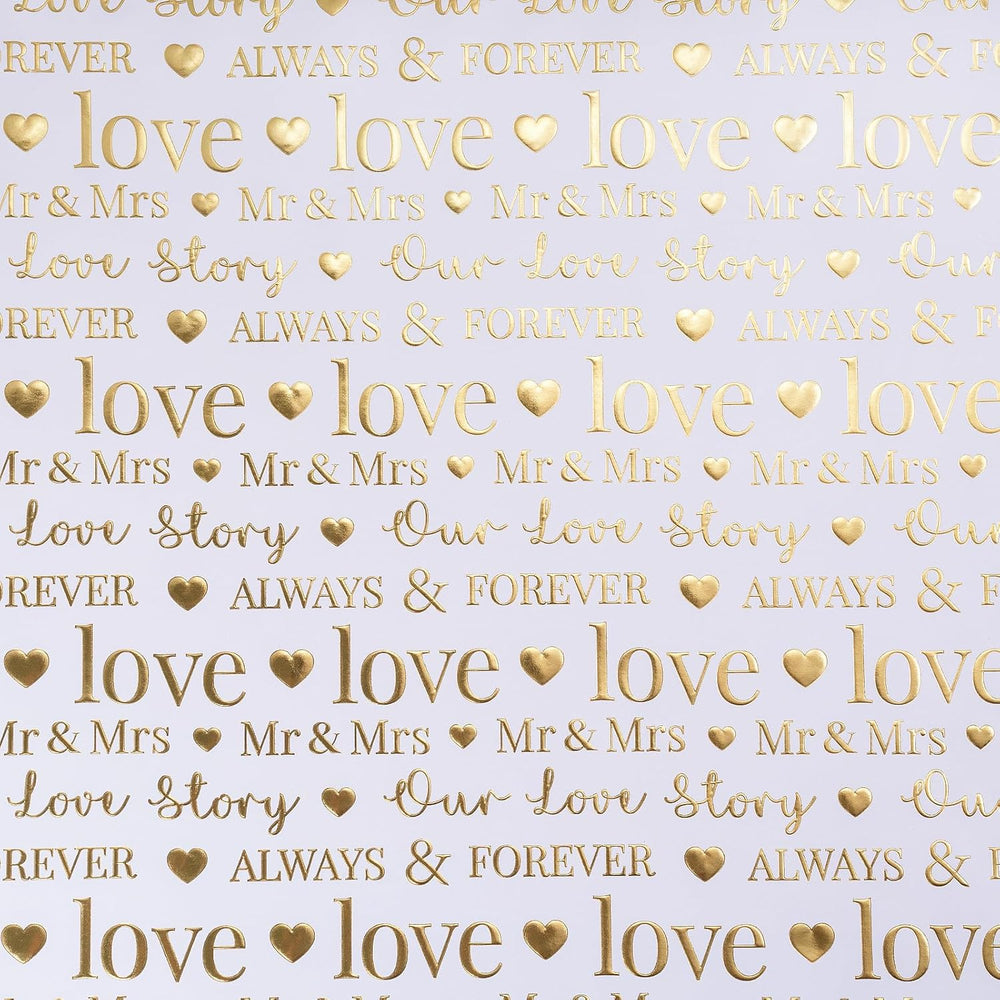 Love Story Our Love Story Our
REVER ALWAYS & FOREVER ALWAYS & F
love love love love
Mr & Mrs Mr & Mrs Mr & Mrs Mr & Mrs
Love Story Our Love Story Our
OREVER ALWAYS & FOREVER ALWAYS & F
love love love love
Mr & Mrs Mr & Mrs Mr & Mrs Mr & Mrs
Love Story Our Love Story Our
OREVER ALWAYS & FOREVER ALWAYS & F
love love love love
Mr & Mrs Mr & Mrs Mr & Mrs Mr & Mrs
Love Story Our Love Story Ou
OREVER ALWAYS & FOREVER ALWAYS & F
love love love love